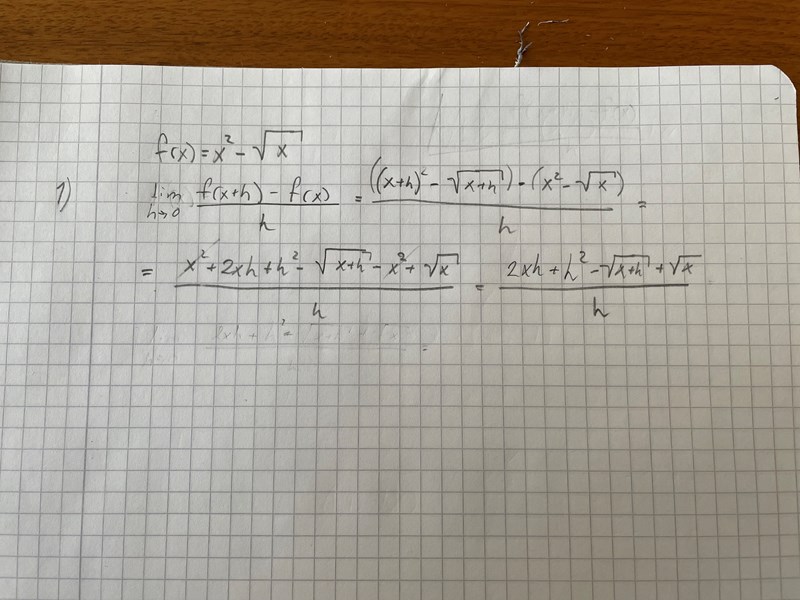 f(x) = x² - √x
1) lim h→0 (f(x+h) - f(x))/h = (((x+h)² - √(x+h)) - (x² - √x))/h =
= (x² + 2xh + h² - √(x+h) - x² + √x)/h = (2xh + h² - √(x+h) + √x)/h